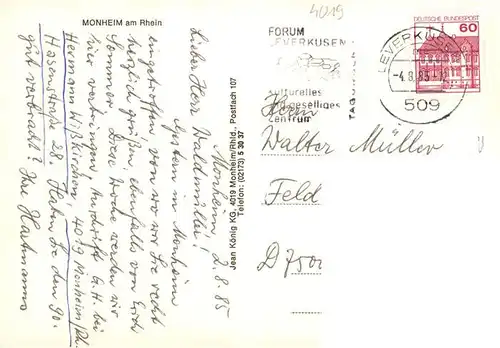 MONHEIM am Rhein
4019
Monheim, 2.8.85
Lieber Herr Waldmüller!
Gestern in Monheim
eingetroffen von wo wir Sie recht
herzlich grüßen, ebenfalls vom Erich
Sommer. Diese Woche werden wir
hier verbringen, Anschrift G.H. bei
Hermann Wißkirchen, 4019 Monheim/Rh.
Hasenstraße 28. Haben Sie den 90.
gut verbracht? Ihre Hartmanns
Jean König KG, 4019 Monheim/Rhld., Postfach 107
Telefon: (02173) 5 30 37
FORUM
LEVERKUSEN
kulturelles
und geselliges
Zentrum
DEUTSCHE BUNDESPOST
60
LEVERKUSEN
-4.8.85
509
Herrn
Walter Müller
Feld
D 750